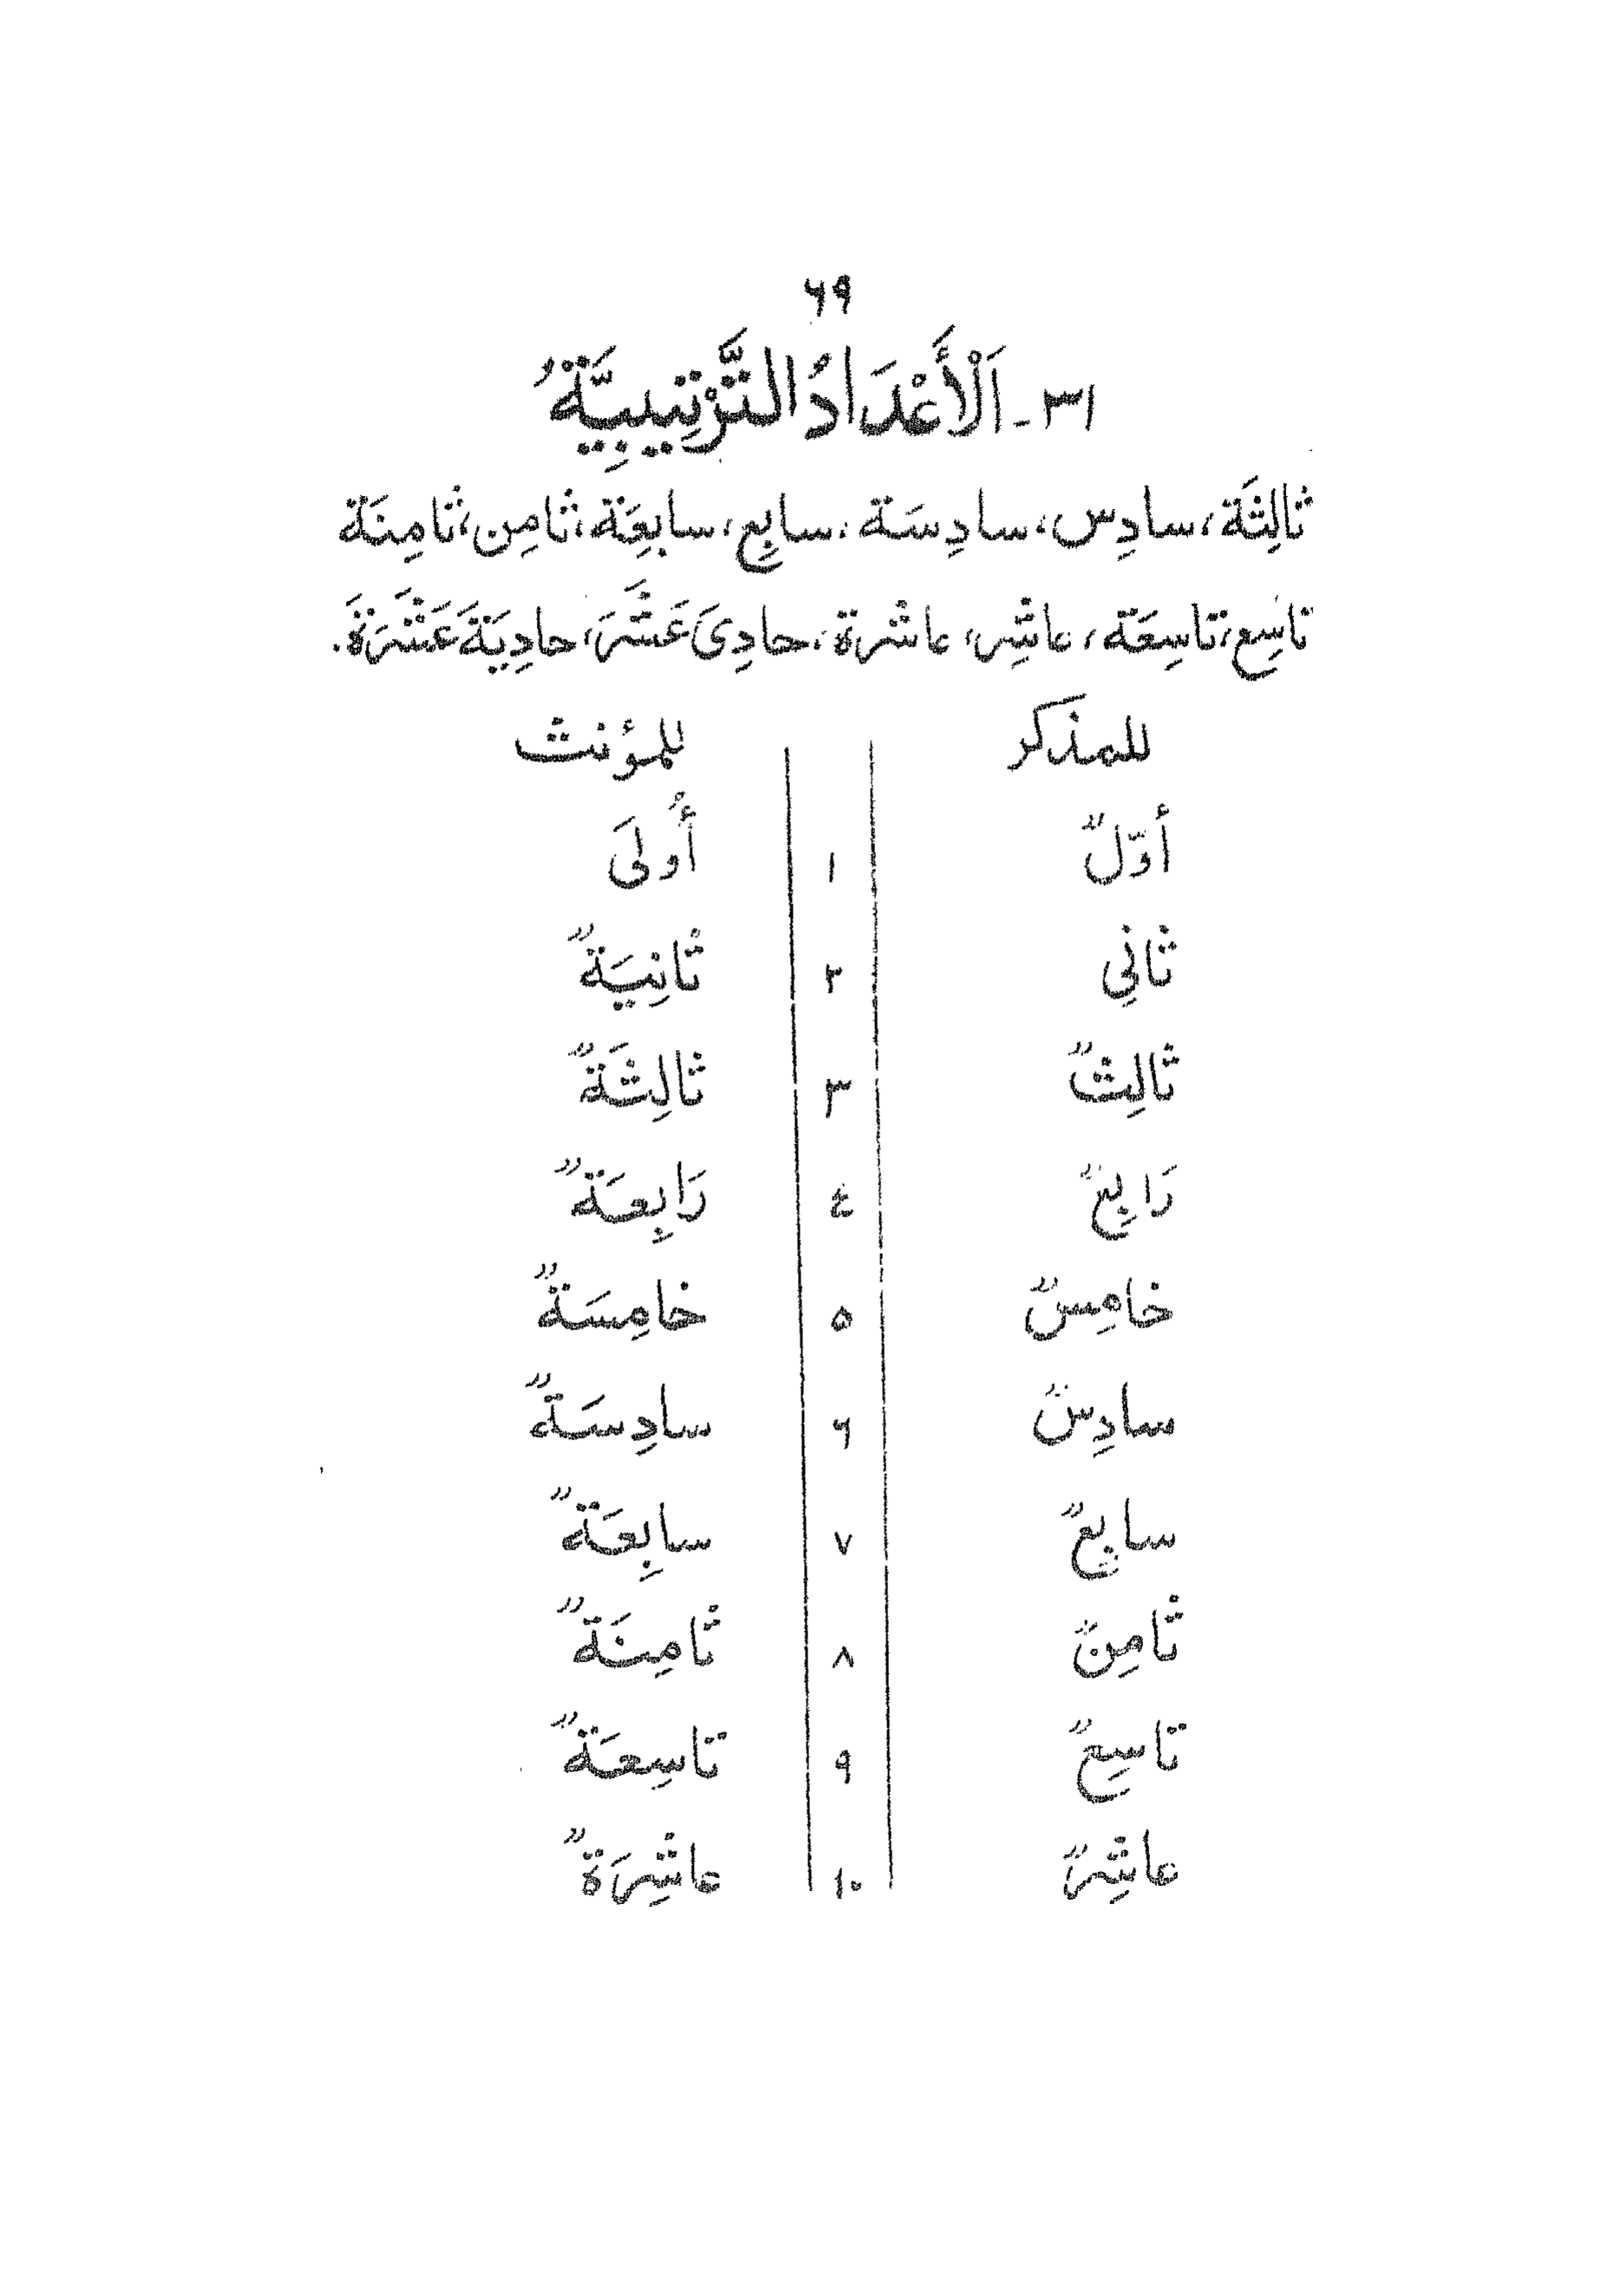 ٦٩
٣١ - اَلْأَعْدَادُ التَّرْتِيبِيَّةُ
ثالِثَة، سادِس، سادِسَة، سابِع، سابِعَة، ثامِن، ثامِنَة
تاسِع، تاسِعَة، عاشِر، عاشرة، حادِىَ عَشَرَ، حادِيَةَ عَشْرَةَ.
للمذكر للمؤنث
أوّلٌ ١ أُولَى
ثانِي ٢ ثانِيَةٌ
ثالِثٌ ٣ ثالِثَةٌ
رَابِعٌ ٤ رَابِعَةٌ
خامِسٌ ٥ خامِسَةٌ
سادِسٌ ٦ سادِسَةٌ
سابِعٌ ٧ سابِعَةٌ
ثامِنٌ ٨ ثامِنَةٌ
تاسِعٌ ٩ تاسِعَةٌ
عاشِرٌ ١٠ عاشِرَةٌ